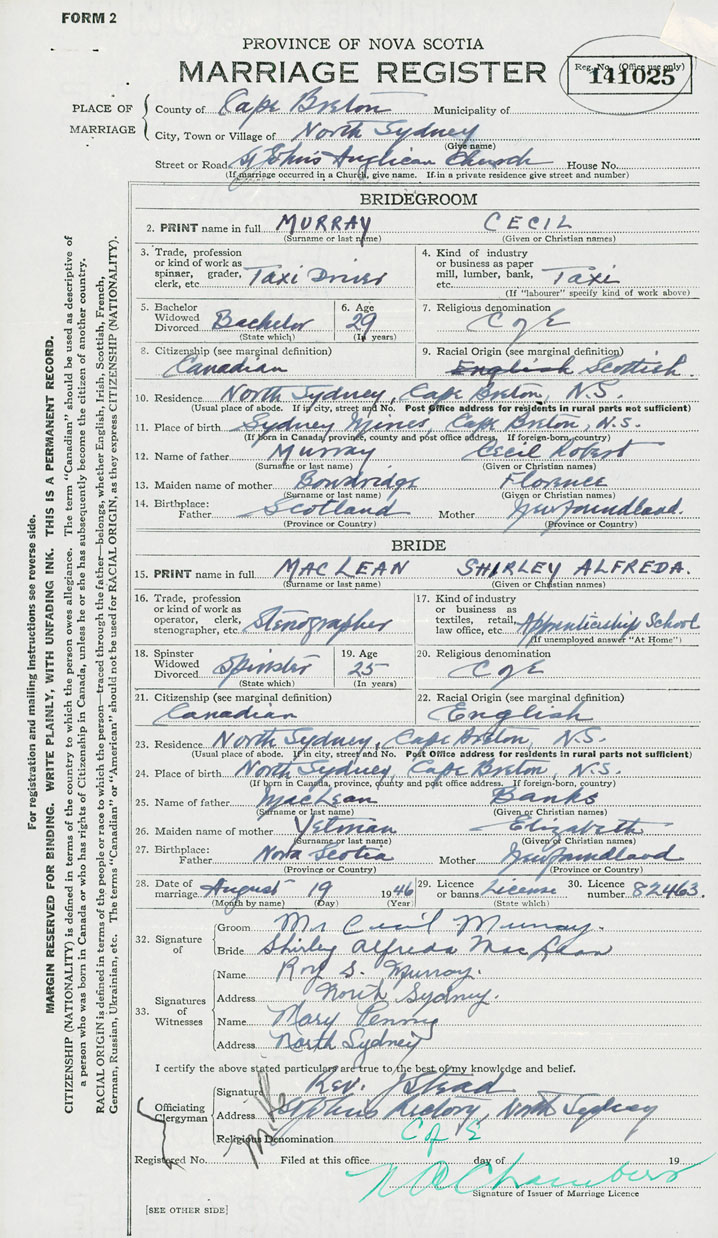 FORM 2
PROVINCE OF NOVA SCOTIA
MARRIAGE REGISTER
Reg. No. (Office use only)
141025
PLACE OF MARRIAGE
County of Cape Breton Municipality of
City, Town or Village of North Sydney
(Give name)
Street or Road St John's Anglican Church House No.
(If marriage occurred in a Church, give name. If in a private residence give street and number)
BRIDEGROOM
2. PRINT name in full MURRAY CECIL
(Surname or last name) (Given or Christian names)
3. Trade, profession or kind of work as spinner, grader, clerk, etc. Taxi Driver
4. Kind of industry or business as paper mill, lumber, bank, etc. Taxi
(If "labourer" specify kind of work above)
5. Bachelor Widowed Divorced Bachelor
(State which)
6. Age 29
(In years)
7. Religious denomination
C of E
8. Citizenship (see marginal definition)
Canadian
9. Racial Origin (see marginal definition)
English Scottish.
10. Residence North Sydney, Cape Breton, N.S.
(Usual place of abode. If in city, street and No. Post Office address for residents in rural parts not sufficient)
11. Place of birth Sydney Mines, Cape Breton, N.S.
(If born in Canada, province, county and post office address. If foreign-born, country)
12. Name of father Murray Cecil Robert
(Surname or last name) (Given or Christian names)
13. Maiden name of mother Bowdridge Florence
(Surname or last name) (Given or Christian names)
14. Birthplace: Father Scotland Mother Newfoundland.
(Province or Country) (Province or Country)
BRIDE
15. PRINT name in full MACLEAN SHIRLEY ALFREDA.
(Surname or last name) (Given or Christian names)
16. Trade, profession or kind of work as operator, clerk, stenographer, etc. Stenographer
17. Kind of industry or business as textiles, retail, law office, etc. Apprenticeship School
(If unemployed answer "At Home")
18. Spinster Widowed Divorced Spinster
(State which)
19. Age 25
(In years)
20. Religious denomination
C of E
21. Citizenship (see marginal definition)
Canadian
22. Racial Origin (see marginal definition)
English
23. Residence North Sydney, Cape Breton, N.S.
(Usual place of abode. If in city, street and No. Post Office address for residents in rural parts not sufficient)
24. Place of birth North Sydney, Cape Breton, N.S.
(If born in Canada, province, county and post office address. If foreign-born, country)
25. Name of father MacLean Banks
(Surname or last name) (Given or Christian names)
26. Maiden name of mother Yetman Elizabeth
(Surname or last name) (Given or Christian names)
27. Birthplace: Father Nova Scotia Mother Newfoundland
(Province or Country) (Province or Country)
28. Date of marriage August 19 1946
(Month by name) (Day) (Year)
29. Licence or banns License
(State which)
30. Licence number 82463.
32. Signature of
Groom Mr Cecil Murray.
Bride Shirley Alfreda MacLean
33. Signatures of Witnesses
Name Roy S. Murray.
Address North Sydney.
Name Mary Penny
Address North Sydney
I certify the above stated particulars are true to the best of my knowledge and belief.
Officiating Clergyman
Signature Rev. J Stead
Address St Johns Rectory, North Sydney
Religious Denomination C of E
Registered No. Filed at this office day of 19
Signature of Issuer of Marriage Licence
[SEE OTHER SIDE]
For registration and mailing instructions see reverse side.
MARGIN RESERVED FOR BINDING. WRITE PLAINLY, WITH UNFADING INK. THIS IS A PERMANENT RECORD.
CITIZENSHIP (NATIONALITY) is defined in terms of the country to which the person owes allegiance. The term "Canadian" should be used as descriptive of
a person who was born in Canada or who has rights of Citizenship in Canada, unless he or she has subsequently become the citizen of another country.
RACIAL ORIGIN is defined in terms of the people or race to which the person—traced through the father—belongs, whether English, Irish, Scottish, French,
German, Russian, Ukrainian, etc. The terms "Canadian" or "American" should not be used for RACIAL ORIGIN, as they express CITIZENSHIP (NATIONALITY).